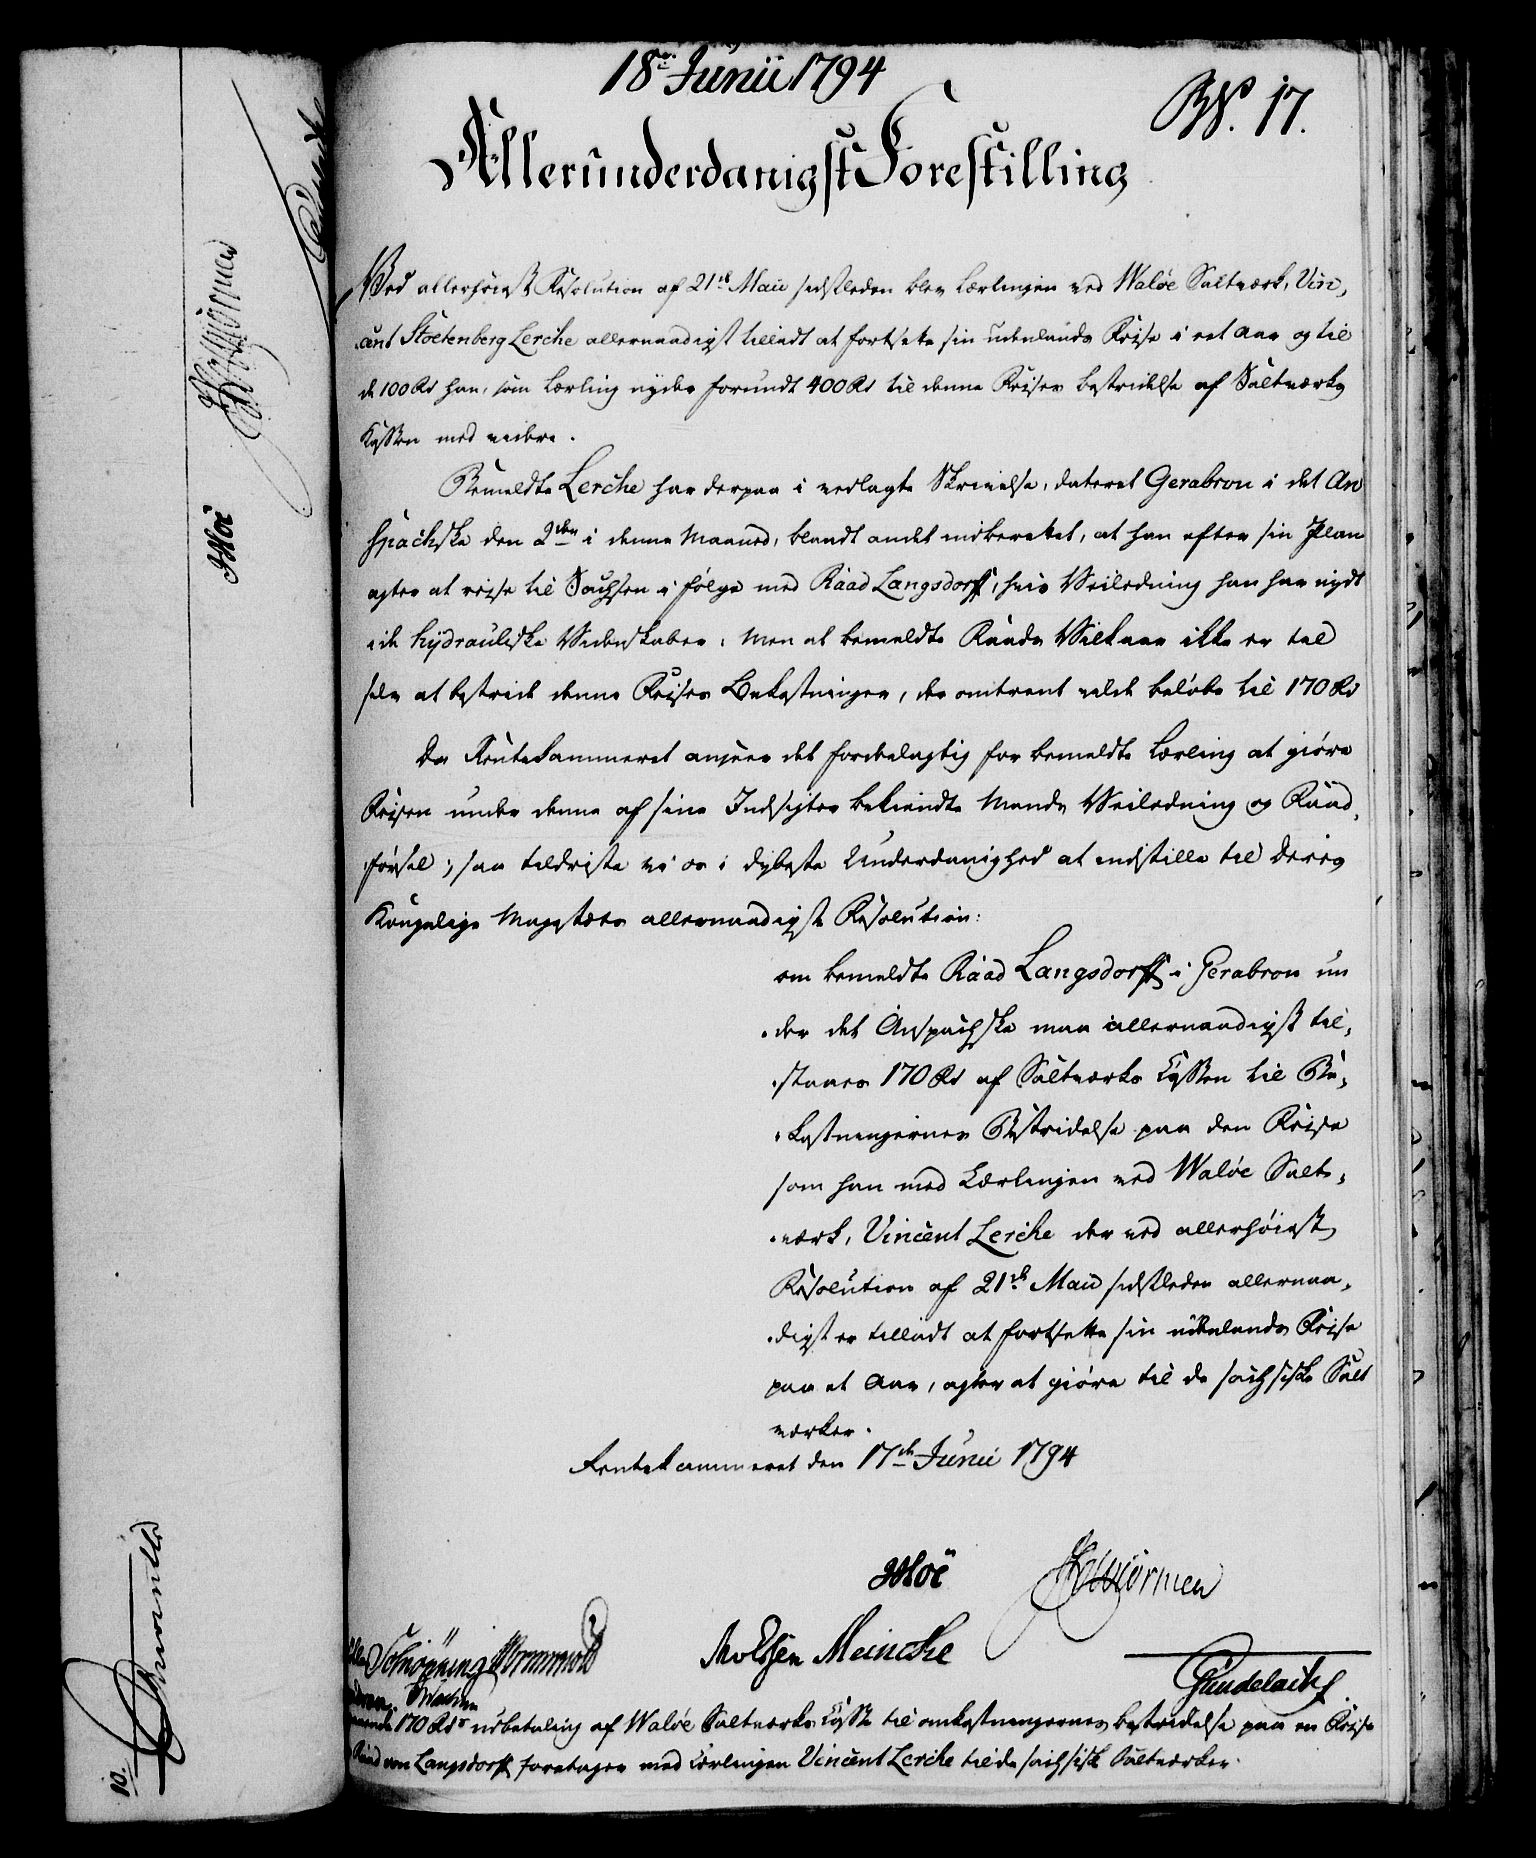 18de Junii 1794
No. 17.
Allerunderdanigst Forestilling
Ved allerhøiest Resolution af 21de Maii sidstleden blev Lærlingen ved Waløe Saltværk, Vin,
cent Stoetenberg Lerche allernaadigst tilladt at fortsætte sin udenlands Reise i eet Aar og til
de 100 Rd han, som Lærling nyder forundt 400 Rd til denne Reises bestridelse af Saltværks
Kassen med videre.
Bemeldte Lerche har derpaa i vedlagte Skrivelse, dateret Gerabron i det An
spachske den 2den i denne Maaned, blandt andet indberettet, at han efter sin Plan
agter at reise til Sachsen i følge med Raad Langsdorff, hvis Veiledning han har nydt
i de hydrauliske Videnskaber, men at bemeldte Raads Vilkaar ikke er til
selv at bestride denne Reises Bekostninger, der omtrent vilde beløbe til 170 Rd
Da Rentekammeret anseer det fordeelagtig for bemeldte Lærling at giøre
Reisen under denne af sine Indsigter bekiendte Mands Veiledning og Raad,
førsel; saa tildriste vi os i dybeste Underdanighed at indstille til Deres
Kongelige Majestæts allernaadigste Resolution:
om bemeldte Raad Langsdorff i Gerabron un
der det Anspachske maa allernaadigst til,
staaes 170 Rd af Saltværks Cassen til Be,
kostningernes Bestridelse paa den Reise
som han med Lærlingen ved Waløe Salt,
værk, Vincent Lerche der ved allerhøiest
Resolution af 21de Maii sidstleden allernaa,
digst er tilladt at fortsætte sin udenlands Reise
paa et Aar, agter at giøre til de sachsiske Salt
værker.
Rentekammeret den 17de Junii 1794
Moe
Wormen
Schiønning
Molsen Meincke
Gundelach
170 Rdr udbetaling af Waløe Saltværks Casse til omkostningernes bestridelse paa en Reise
Raad von Langsdorff foretager med Lærlingen Vincent Lerche til de sachsisk Saltværker.
Moe
10.